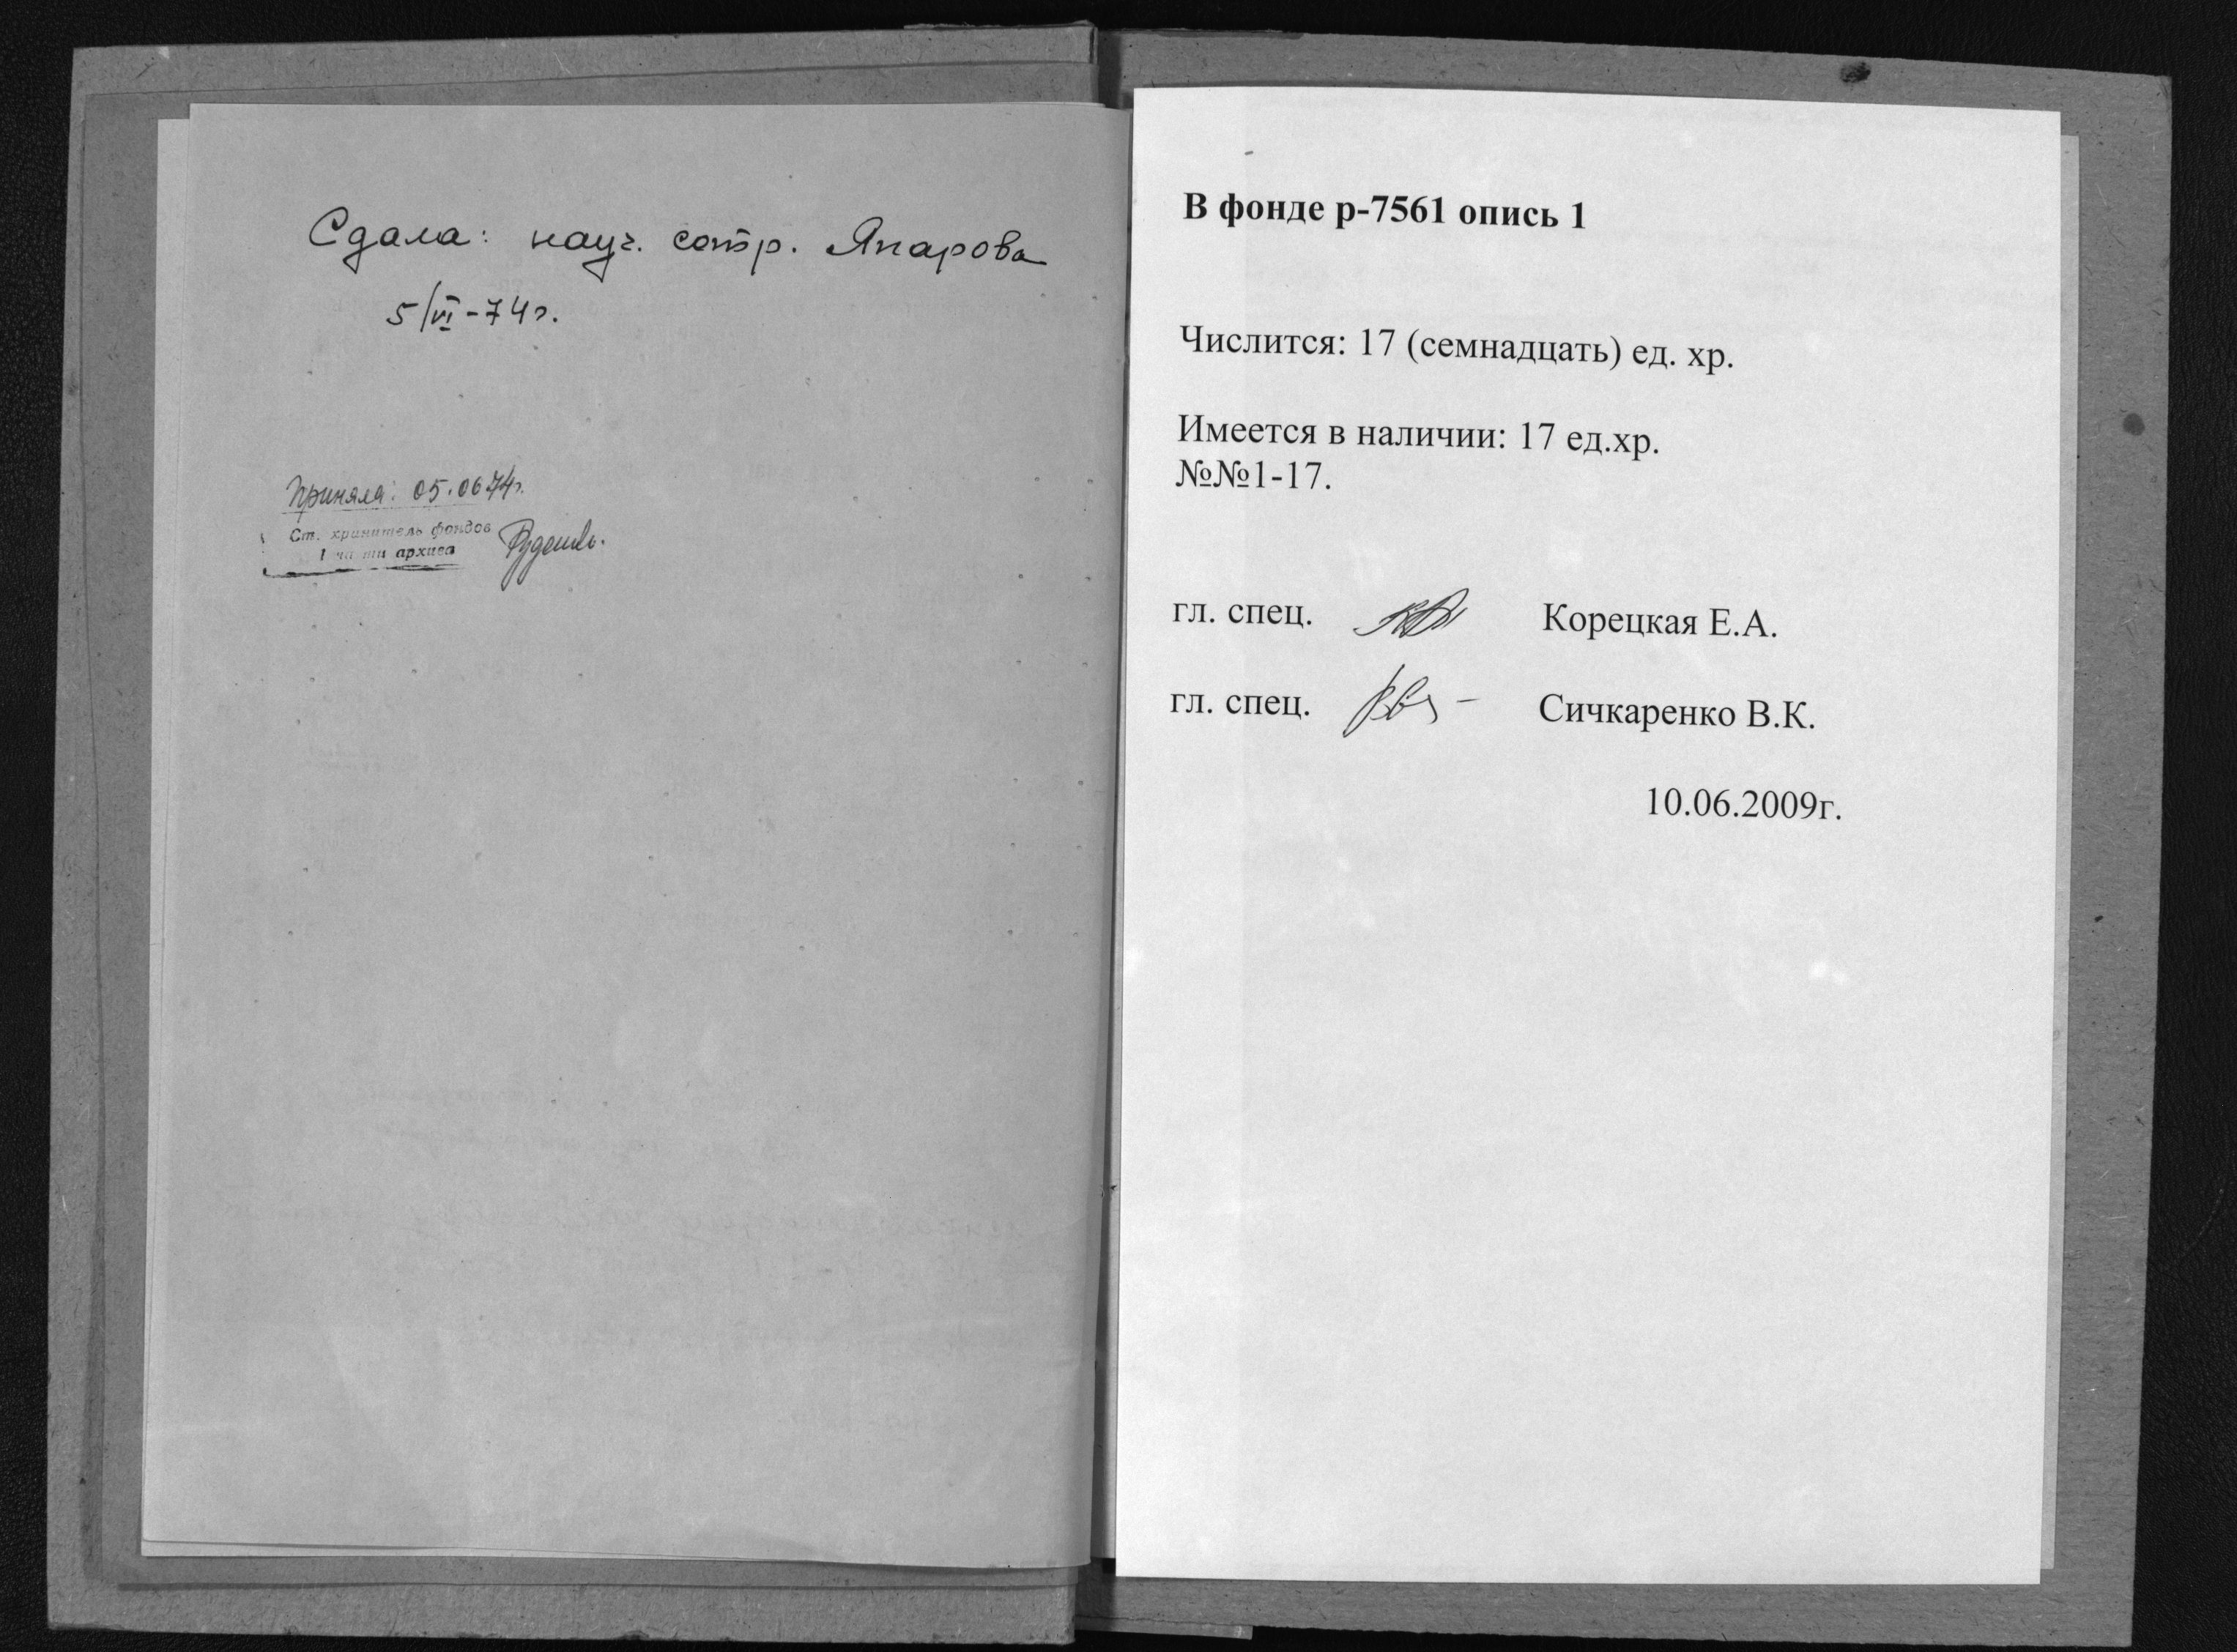 Сдала: науч. сотр. Япарова
5/VI-74г.
Приняла: 05.06.74г.
Ст. хранитель фондов
архива
В фонде р-7561 опись 1
Числится: 17 (семнадцать) ед. хр.
Имеется в наличии: 17 ед.хр.
№№1-17.
гл. спец. Корецкая Е.А.
гл. спец. Сичкаренко В.К.
10.06.2009г.